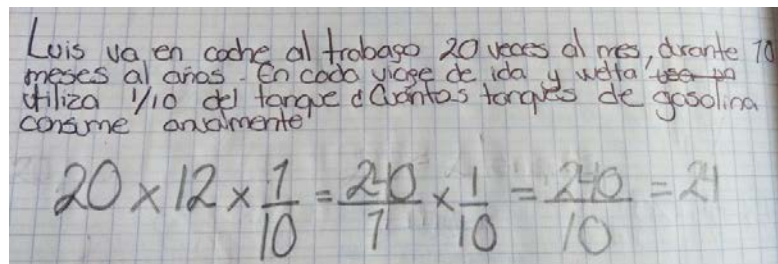 Luis va en coche al trabago 20 veces al mes, durante 10
meses al años. En cada viage de ida y vuelta
utiliza 1/10 del tanque ¿Cuántos tanques de gasolina
consume anualmente
20 × 12 × 1/10 = 240/1 × 1/10 = 240/10 = 24